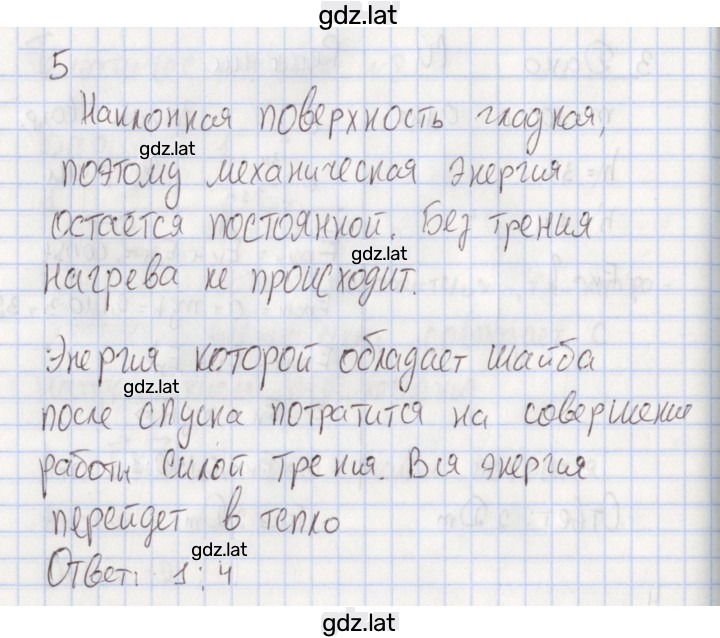 gdz.lat
5
Наклонная поверхность гладкая,
gdz.lat
поэтому механическая энергия
остаётся постоянной. Без трения
gdz.lat
нагрева не происходит.
Энергия которой обладает шайба
gdz.lat
после спуска потратится на совершение
работы силой трения. Вся энергия
перейдет в тепло
gdz.lat
Ответ: 1:4
gdz.lat